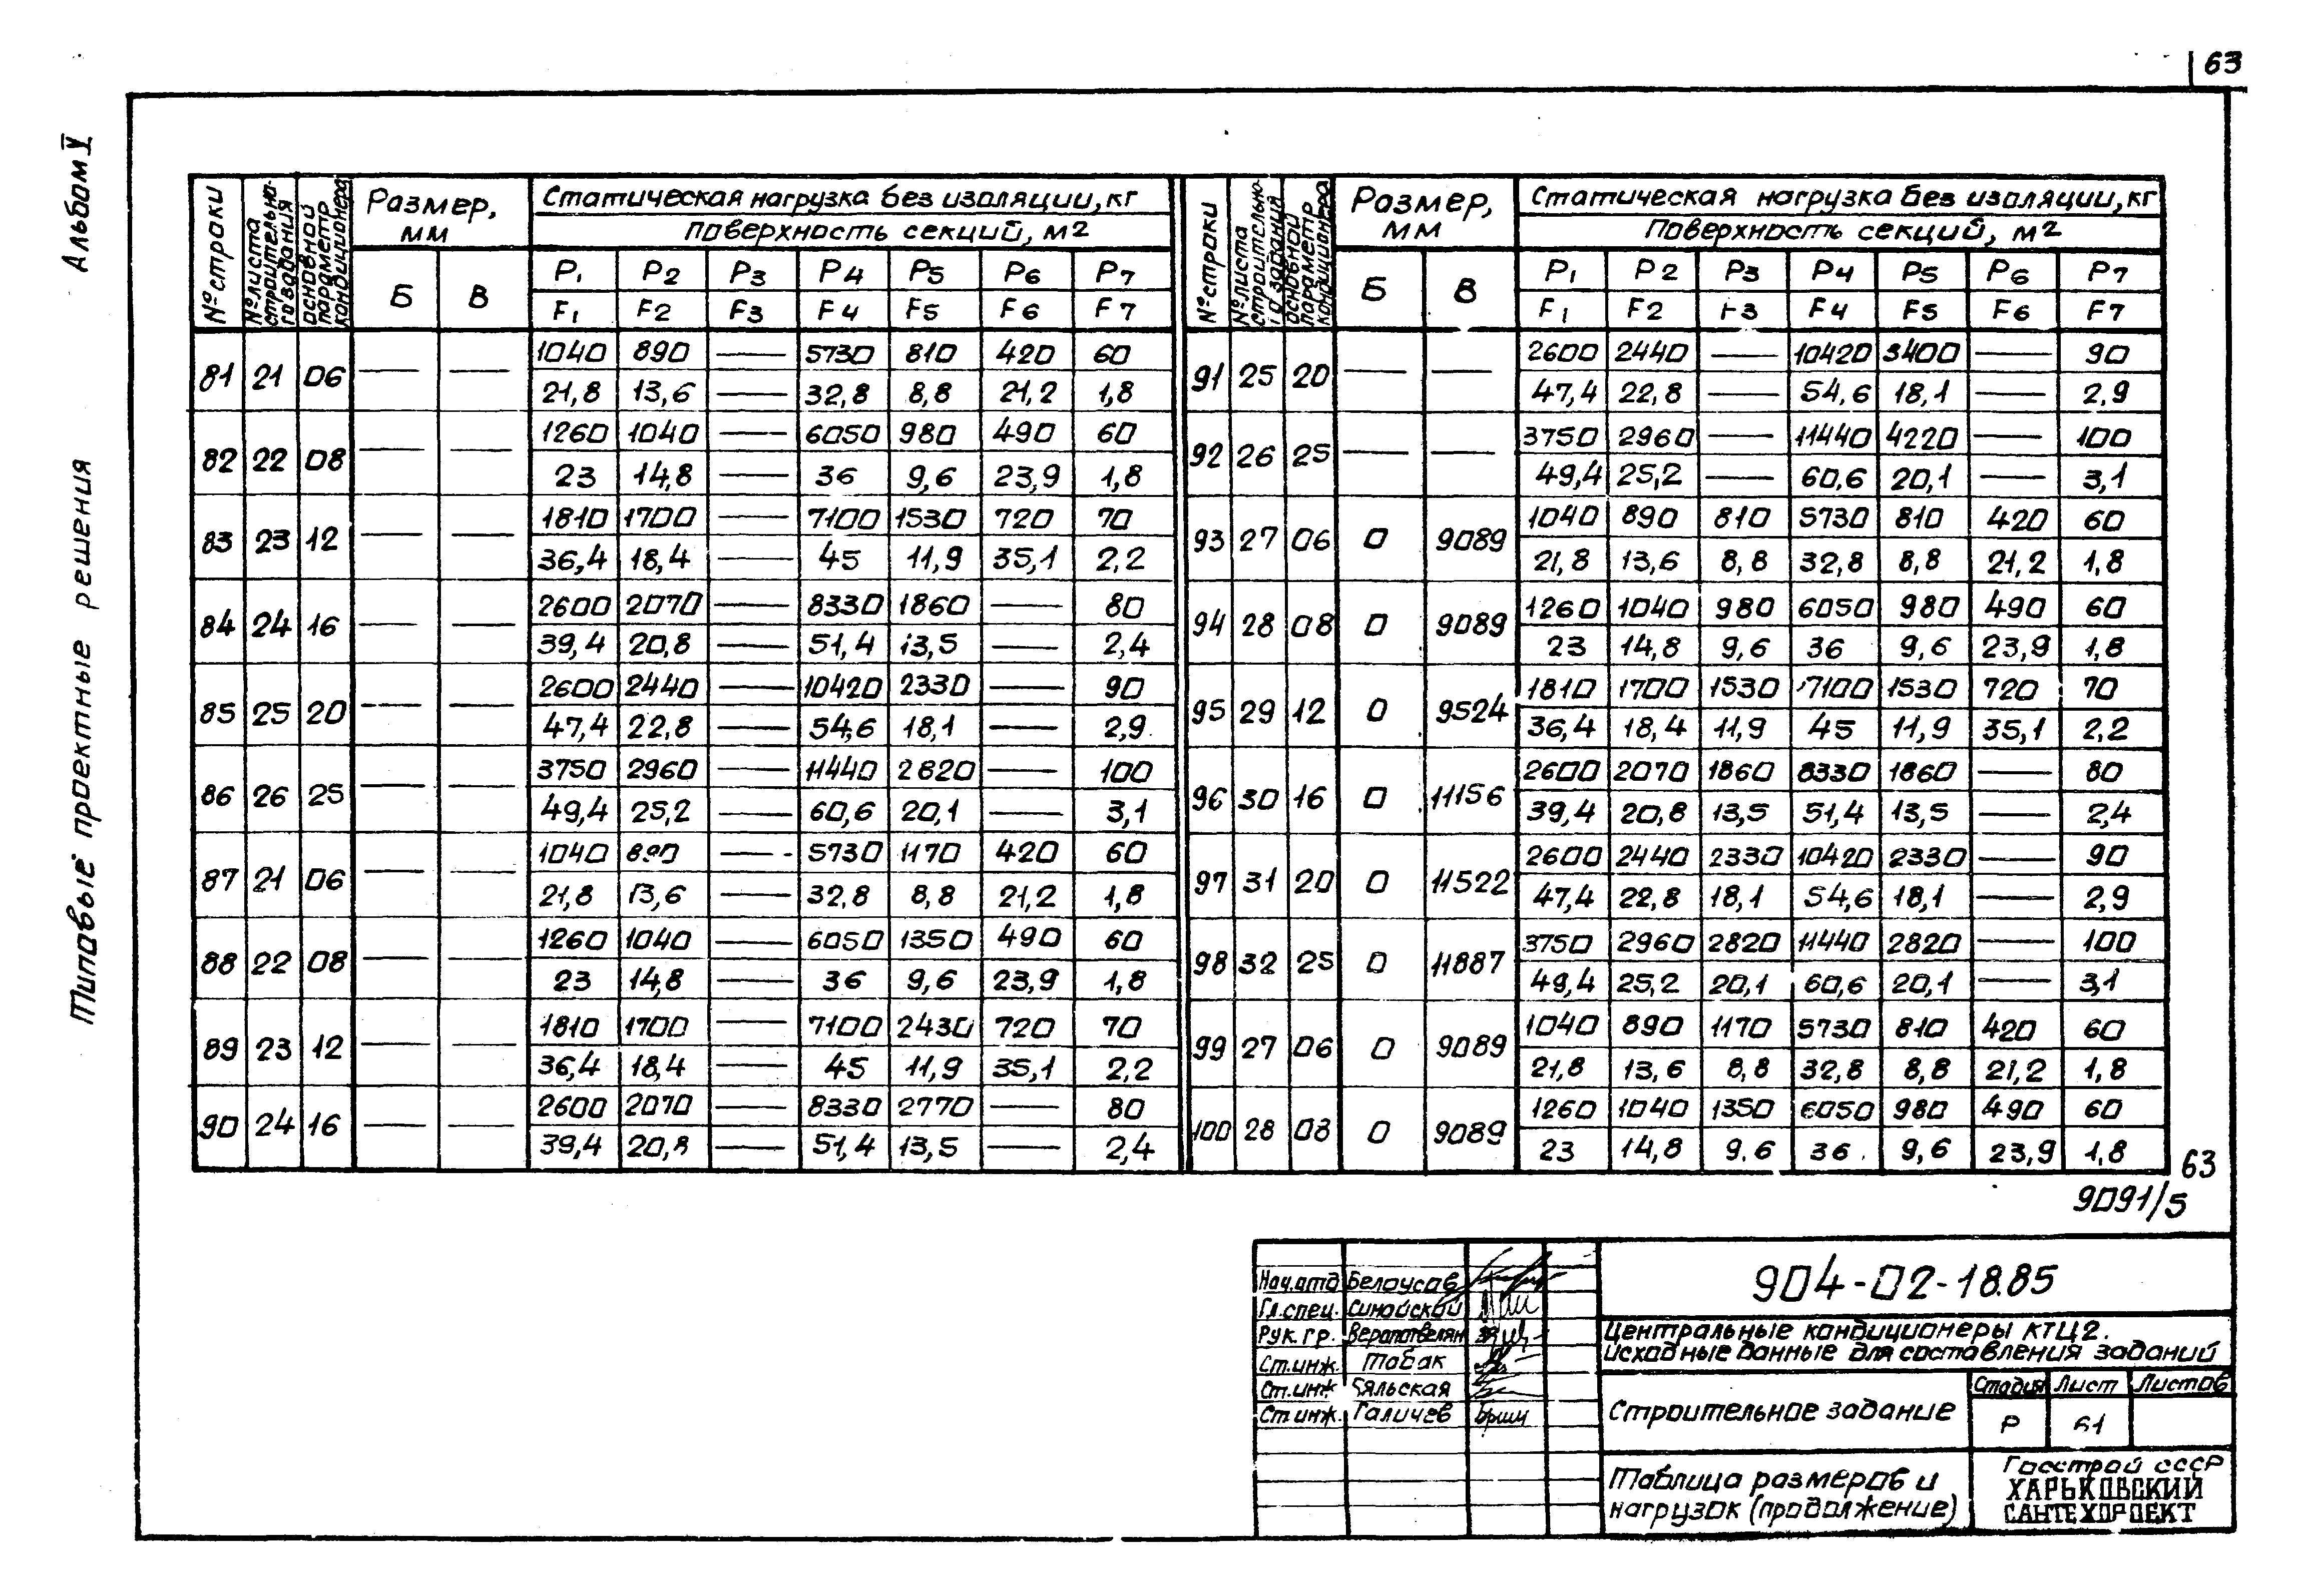 63
Альбом V
Типовые проектные решения
№ строки | № листа строительно-го задания | основной параметр кондиционера | Размер, мм | Статическая нагрузка без изоляции, кг
Поверхность секций, м2
Б | В | P1 | P2 | P3 | P4 | P5 | P6 | P7
F1 | F2 | F3 | F4 | F5 | F6 | F7
81 | 21 | 06 | — | — | 1040 | 890 | — | 5730 | 810 | 420 | 60
21,8 | 13,6 | — | 32,8 | 8,8 | 21,2 | 1,8
82 | 22 | 08 | — | — | 1260 | 1040 | — | 6050 | 980 | 490 | 60
23 | 14,8 | — | 36 | 9,6 | 23,9 | 1,8
83 | 23 | 12 | — | — | 1810 | 1700 | — | 7100 | 1530 | 720 | 70
36,4 | 18,4 | — | 45 | 11,9 | 35,1 | 2,2
84 | 24 | 16 | — | — | 2600 | 2070 | — | 8330 | 1860 | — | 80
39,4 | 20,8 | — | 51,4 | 13,5 | — | 2,4
85 | 25 | 20 | — | — | 2600 | 2440 | — | 10420 | 2330 | — | 90
47,4 | 22,8 | — | 54,6 | 18,1 | — | 2,9
86 | 26 | 25 | — | — | 3750 | 2960 | — | 11440 | 2820 | — | 100
49,4 | 25,2 | — | 60,6 | 20,1 | — | 3,1
87 | 21 | 06 | — | — | 1040 | 890 | — | 5730 | 1170 | 420 | 60
21,8 | 13,6 | — | 32,8 | 8,8 | 21,2 | 1,8
88 | 22 | 08 | — | — | 1260 | 1040 | — | 6050 | 1350 | 490 | 60
23 | 14,8 | — | 36 | 9,6 | 23,9 | 1,8
89 | 23 | 12 | — | — | 1810 | 1700 | — | 7100 | 2430 | 720 | 70
36,4 | 18,4 | — | 45 | 11,9 | 35,1 | 2,2
90 | 24 | 16 | — | — | 2600 | 2070 | — | 8330 | 2770 | — | 80
39,4 | 20,8 | — | 51,4 | 13,5 | — | 2,4
№ строки | № листа строительно-го задания | основной параметр кондиционера | Размер, мм | Статическая нагрузка без изоляции, кг
Поверхность секций, м2
Б | В | P1 | P2 | P3 | P4 | P5 | P6 | P7
F1 | F2 | F3 | F4 | F5 | F6 | F7
91 | 25 | 20 | — | — | 2600 | 2440 | — | 10420 | 3400 | — | 90
47,4 | 22,8 | — | 54,6 | 18,1 | — | 2,9
92 | 26 | 25 | — | — | 3750 | 2960 | — | 11440 | 4220 | — | 100
49,4 | 25,2 | — | 60,6 | 20,1 | — | 3,1
93 | 27 | 06 | 0 | 9089 | 1040 | 890 | 810 | 5730 | 810 | 420 | 60
21,8 | 13,6 | 8,8 | 32,8 | 8,8 | 21,2 | 1,8
94 | 28 | 08 | 0 | 9089 | 1260 | 1040 | 980 | 6050 | 980 | 490 | 60
23 | 14,8 | 9,6 | 36 | 9,6 | 23,9 | 1,8
95 | 29 | 12 | 0 | 9524 | 1810 | 1700 | 1530 | 7100 | 1530 | 720 | 70
36,4 | 18,4 | 11,9 | 45 | 11,9 | 35,1 | 2,2
96 | 30 | 16 | 0 | 11156 | 2600 | 2070 | 1860 | 8330 | 1860 | — | 80
39,4 | 20,8 | 13,5 | 51,4 | 13,5 | — | 2,4
97 | 31 | 20 | 0 | 11522 | 2600 | 2440 | 2330 | 10420 | 2330 | — | 90
47,4 | 22,8 | 18,1 | 54,6 | 18,1 | — | 2,9
98 | 32 | 25 | 0 | 11887 | 3750 | 2960 | 2820 | 11440 | 2820 | — | 100
49,4 | 25,2 | 20,1 | 60,6 | 20,1 | — | 3,1
99 | 27 | 06 | 0 | 9089 | 1040 | 890 | 1170 | 5730 | 810 | 420 | 60
21,8 | 13,6 | 8,8 | 32,8 | 8,8 | 21,2 | 1,8
100 | 28 | 08 | 0 | 9089 | 1260 | 1040 | 1350 | 6050 | 980 | 490 | 60
23 | 14,8 | 9.6 | 36 | 9,6 | 23,9 | 1,8
63
9091/5
Нач.отд Белоусов
Гл.спец. Синайский
Рук.гр.
Ст.инж. Товак
Ст.инж Бяльская
Ст.инж. Галичев
904-02-18.85
Центральные кондиционеры КТЦ2.
исходные данные для составления заданий
Строительное задание
Стадия Лист Листов
Р 61
Таблица размеров и
нагрузок (продолжение)
Госстрой СССР
ХАРЬКОВСКИЙ
САНТЕХПРОЕКТ